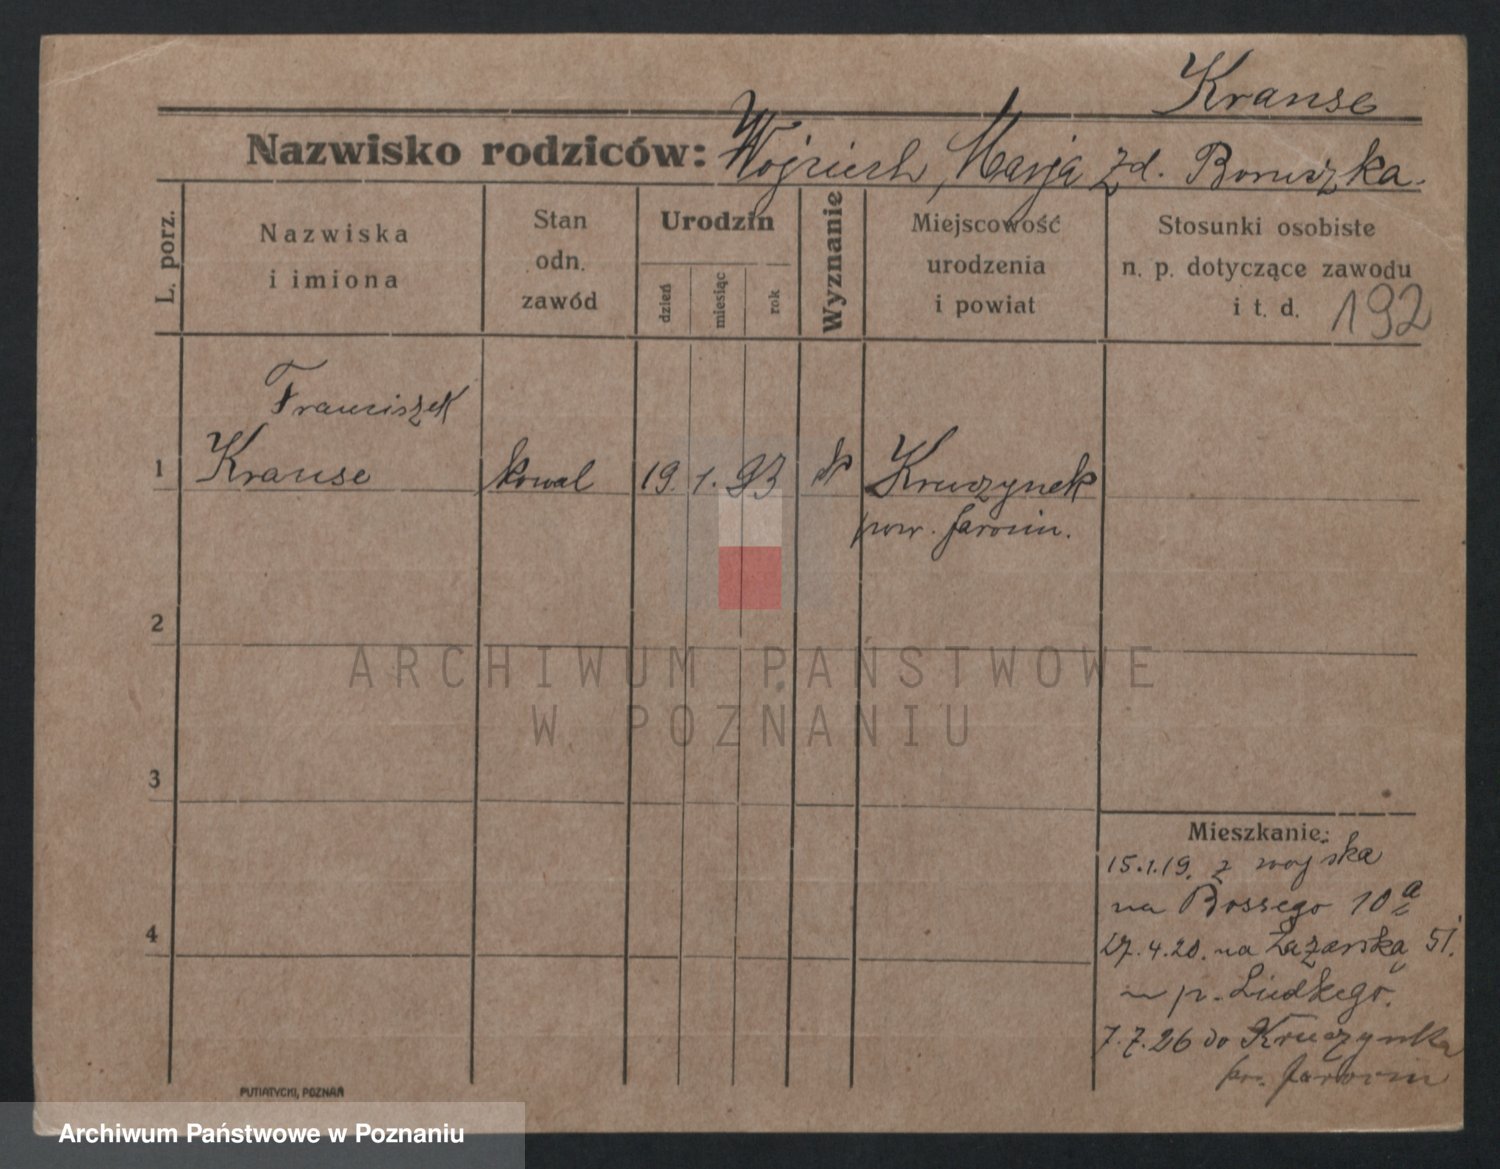 Krause
Nazwisko rodziców: Wojciech, Marja zd. Boruszka.
L. porz.
Nazwiska
i imiona
Stan
odn.
zawód
Urodzin
dzień
miesiąc
rok
Wyznanie
Miejscowość
urodzenia
i powiat
Stosunki osobiste
n. p. dotyczące zawodu
i t. d. 192
Franciszek
1 Krause kowal 19. 1. 93 k Kruczynek
pow. Jarocin.
2
ARCHIWUM PAŃSTWOWE
W POZNANIU
3
Mieszkanie:
15.1.19. z wojska
na Bossego 10a
4
27.4.20. na Łazarską 51.
p. Liedkego.
7.7.26 do Kruczynka
pow. Jarocin
PUTIATYCKI, POZNAŃ
Archiwum Państwowe w Poznaniu